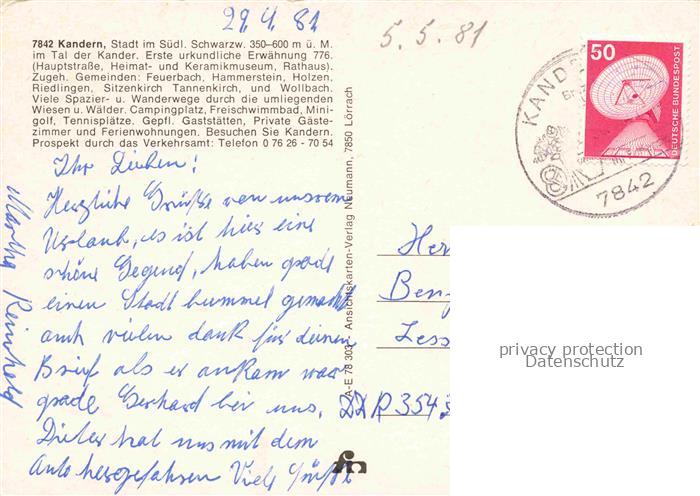 29.4.81
5.5.81
7842 Kandern, Stadt im Südl. Schwarzw. 350–600 m ü. M.
im Tal der Kander. Erste urkundliche Erwähnung 776.
(Hauptstraße, Heimat- und Keramikmuseum, Rathaus).
Zugeh. Gemeinden: Feuerbach, Hammerstein, Holzen,
Riedlingen, Sitzenkirch Tannenkirch, und Wollbach.
Viele Spazier- u. Wanderwege durch die umliegenden
Wiesen u. Wälder. Campingplatz, Freischwimmbad, Mini-
golf, Tennisplätze. Gepfl. Gaststätten, Private Gäste-
zimmer und Ferienwohnungen. Besuchen Sie Kandern.
Prospekt durch das Verkehrsamt: Telefon 0 76 26 - 70 54
Ihr Lieben!
Herzliche Grüße von unserem
Urlaub, es ist hier eine
schöne Gegend, haben grade
einen Stadtbummel gemacht
auch vielen dank für deinen
Brief als er ankam war
grade Gerhard bei uns.
Dieter hat uns mit dem
Auto hergefahren Viele Grüße
Martha Reinhold
A-E 78 303 Ansichtskarten-Verlag Neumann, 7850 Lörrach
50
DEUTSCHE BUNDESPOST
KAND
7842
Her
Ben
Less
DDR 354
privacy protection
Datenschutz